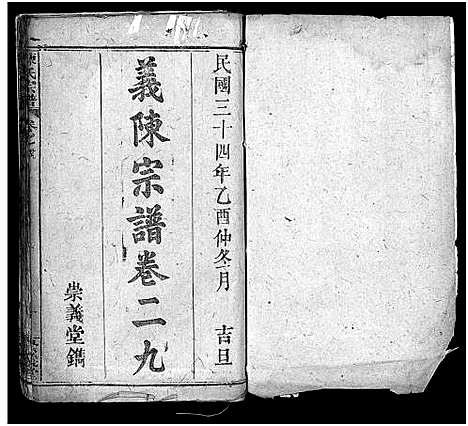 民國三十四年乙酉仲冬月 吉旦
義陳宗譜卷二九
崇義堂鐫